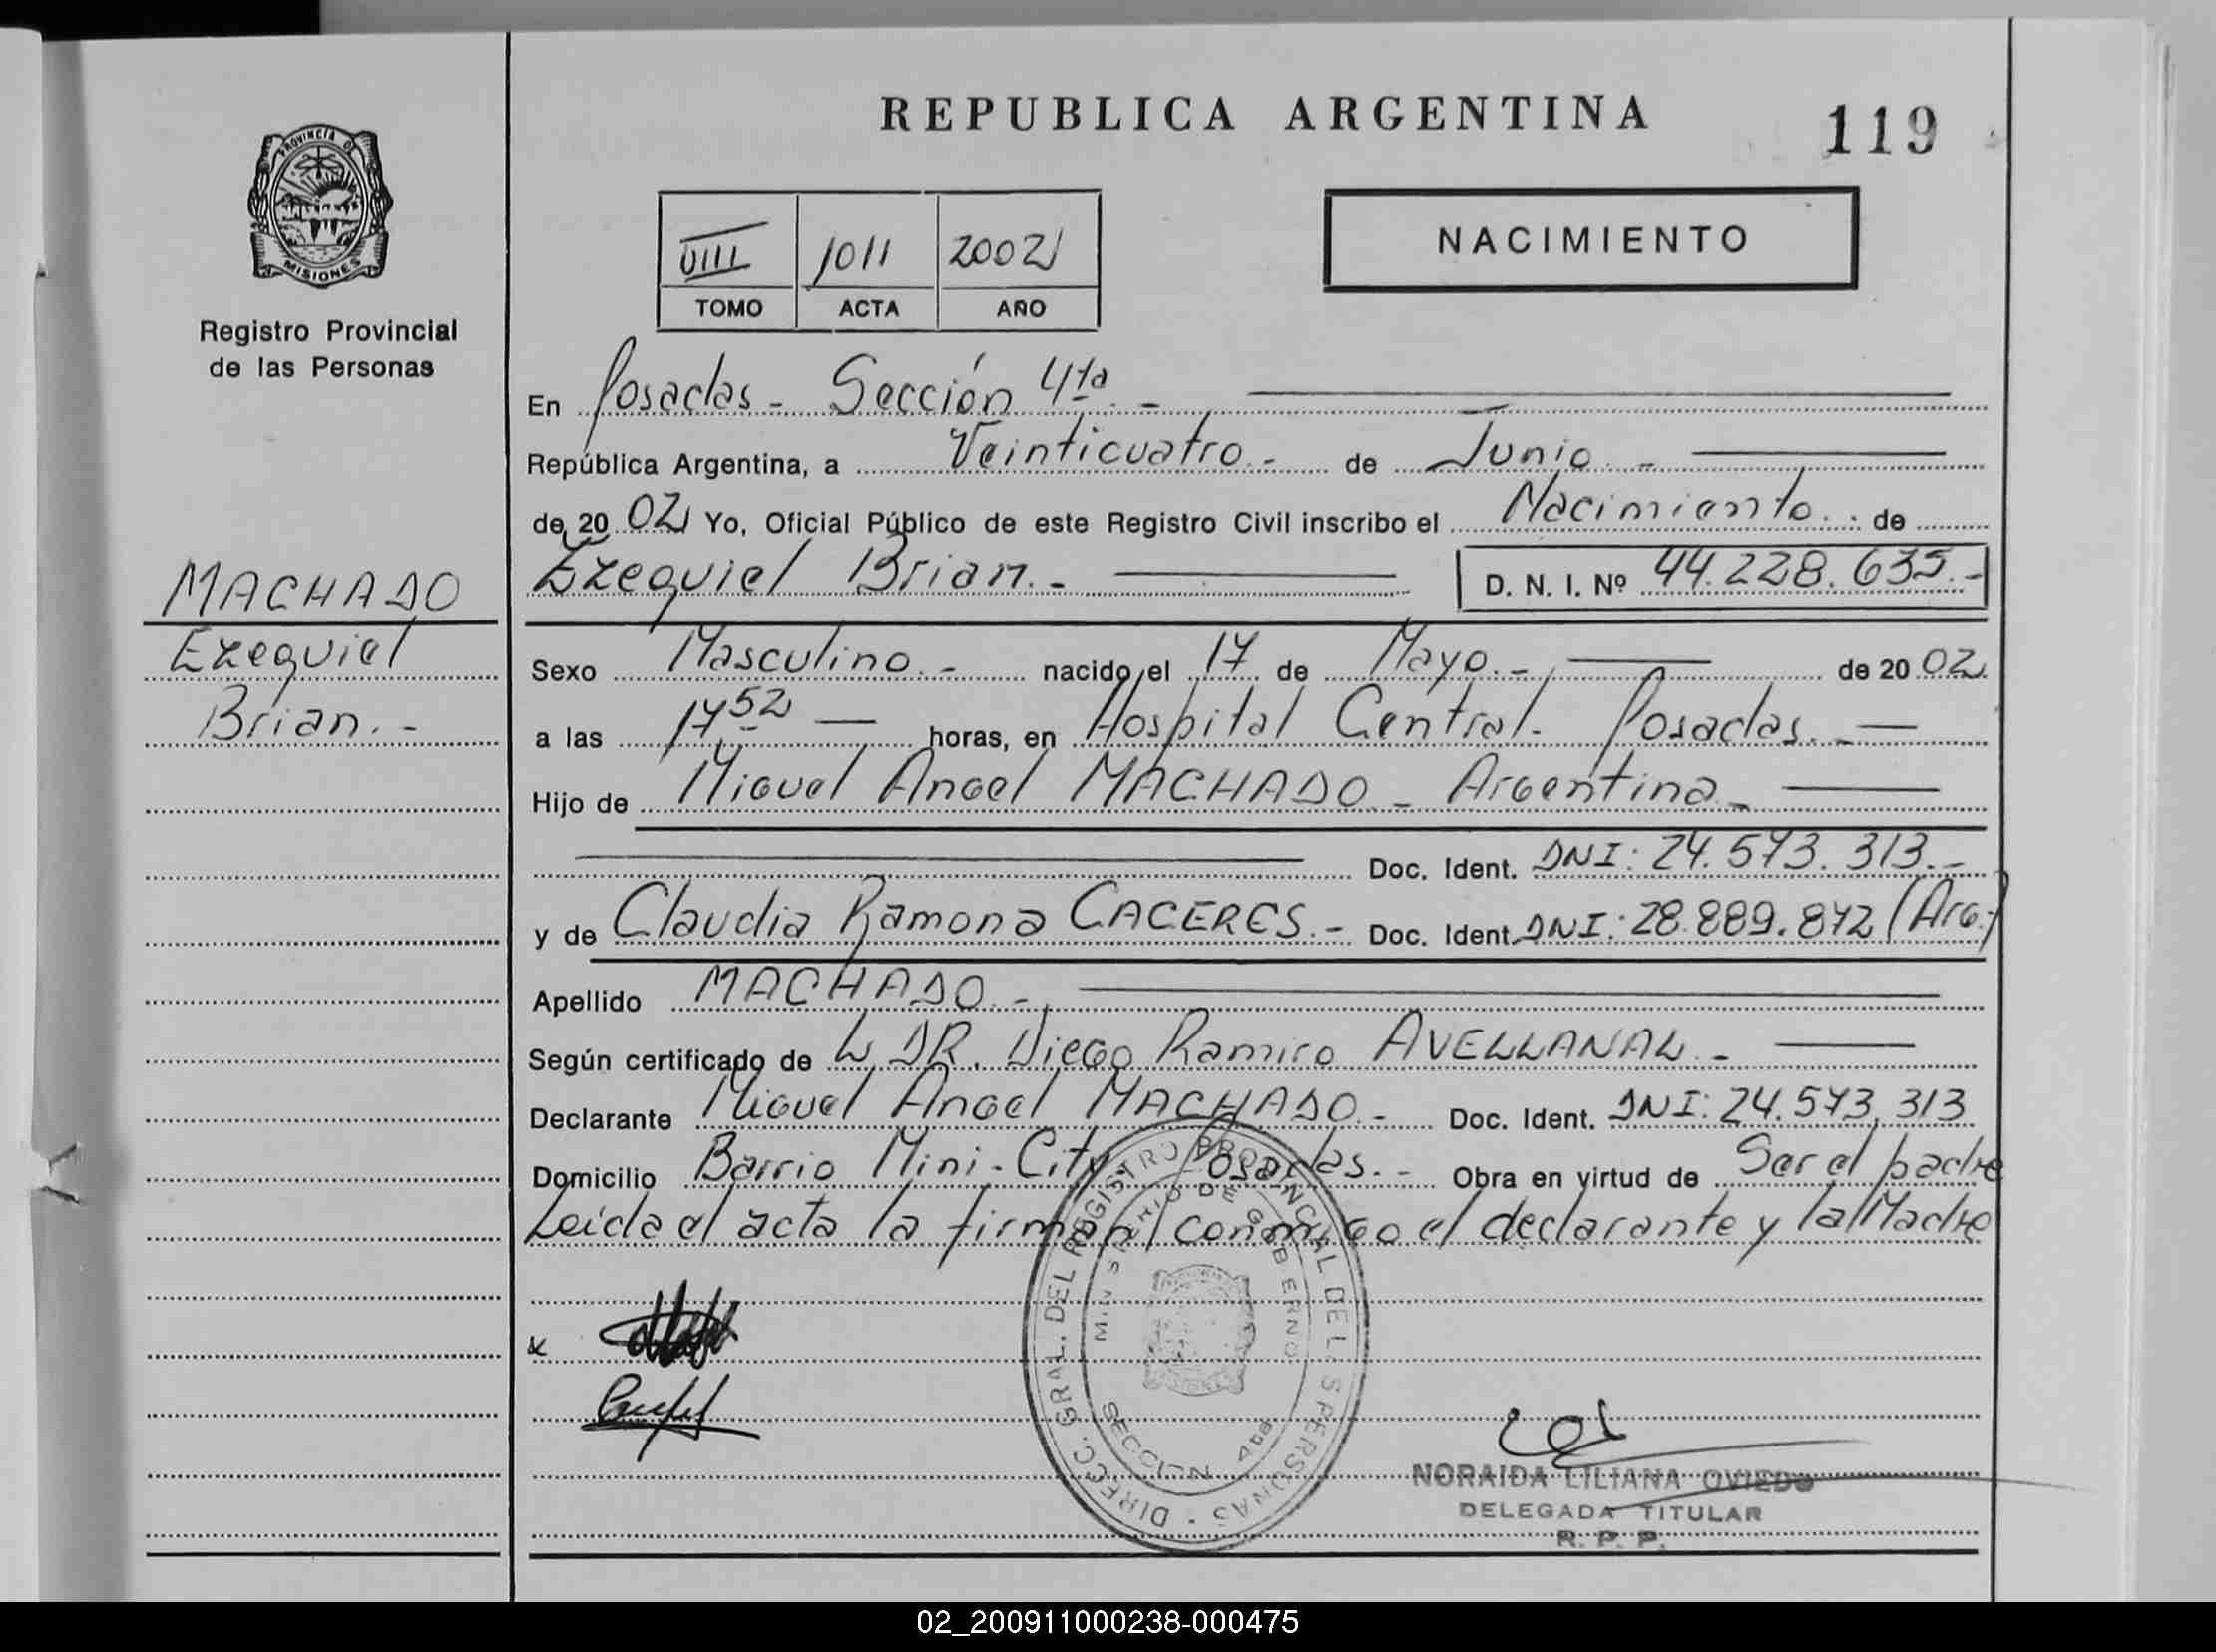 REPUBLICA ARGENTINA
119
PROVINCIA DE
MISIONES
Registro Provincial
de las Personas
VIII 1011 2002
TOMO ACTA AÑO
NACIMIENTO
En Posadas - Sección 4ta -
República Argentina, a Veinticuatro.- de Junio.-
de 2002 Yo, Oficial Público de este Registro Civil inscribo el Nacimiento. de
Ezequiel Brian.- D. N. I. Nº 44.228.635.-
MACHADO
Ezequiel
Brian.-
Sexo Masculino.- nacido el 17 de Mayo.- de 2002
a las 17 52 — horas, en Hospital Central. Posadas.-
Hijo de Miguel Angel MACHADO - Argentina -
Doc. Ident. DNI: 24.573.313.-
y de Claudia Ramona CACERES.- Doc. Ident. DNI: 28.889.872 (Arg.)
Apellido MACHADO.-
Según certificado de L DR. Diego Ramiro AVELLANAL.-
Declarante Miguel Angel MACHADO.- Doc. Ident. DNI: 24.573.313
Domicilio Barrio Mini-City Posadas.- Obra en virtud de Ser el padre
Leida el acta la firman conmigo el declarante y la Madre
DIRECC. GRAL. DEL REGISTRO PROVINCIAL DE LAS PERSONAS
MINISTERIO DE GOBIERNO
SECCION 4ta
NORAIDA LILIANA OVIEDO
DELEGADA TITULAR
R. P. P.
02_200911000238-000475